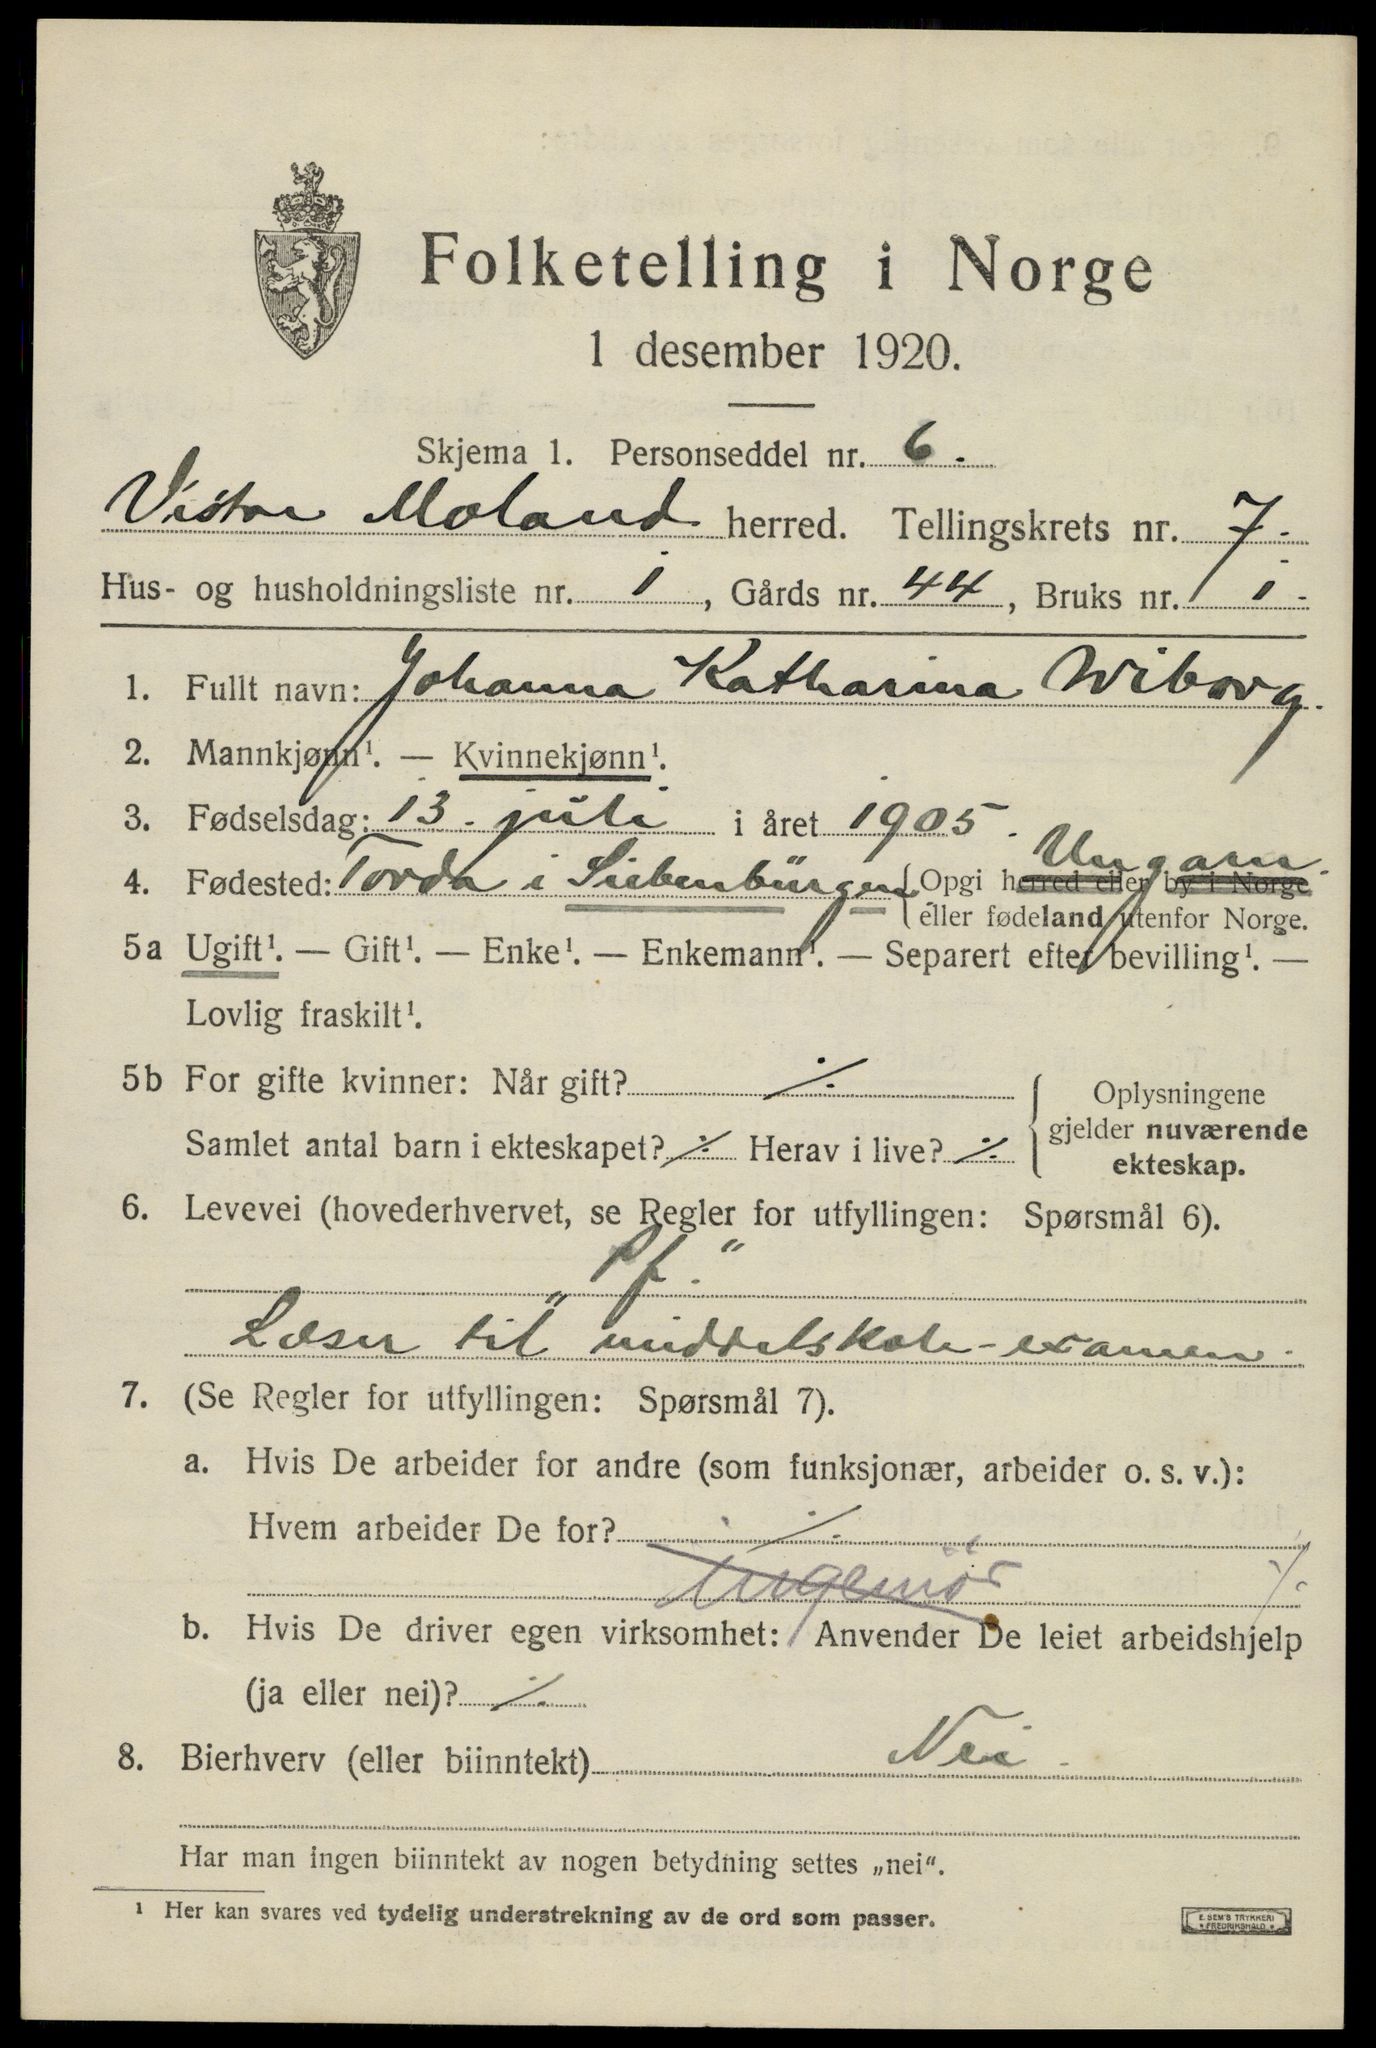 Folketelling i Norge
1 desember 1920.
Skjema 1. Personseddel nr. 6.
Vestre Moland herred. Tellingskrets nr. 7.
Hus- og husholdningsliste nr. 1, Gårds nr. 44, Bruks nr. 1.
1. Fullt navn: Johanna Katharina Wiborg.
2. Mannkjønn¹. — Kvinnekjønn¹.
3. Fødselsdag: 13. juli i året 1905.
Ungarn
4. Fødested: Torda i Siebenbürgen {Opgi herred eller by i Norge
eller fødeland utenfor Norge.
5a Ugift¹. — Gift¹. — Enke¹. — Enkemann¹. — Separert efter bevilling¹. —
Lovlig fraskilt¹.
5b For gifte kvinner: Når gift? ./.
Samlet antal barn i ekteskapet? ./. Herav i live? ./.
Oplysningene
gjelder nuværende
ekteskap.
6. Levevei (hovederhvervet, se Regler for utfyllingen: Spørsmål 6).
"Pf."
Læser til middelskole-examen.
7. (Se Regler for utfyllingen: Spørsmål 7).
a. Hvis De arbeider for andre (som funksjonær, arbeider o. s. v.):
Hvem arbeider De for? ./.
Ingeniør ./.
b. Hvis De driver egen virksomhet: Anvender De leiet arbeidshjelp
(ja eller nei)? ./.
8. Bierhverv (eller biinntekt) Nei.
Har man ingen biinntekt av nogen betydning settes „nei“.
¹ Her kan svares ved tydelig understrekning av de ord som passer.
E. SEM'S TRYKKERI
* FREDRIKSHALD *